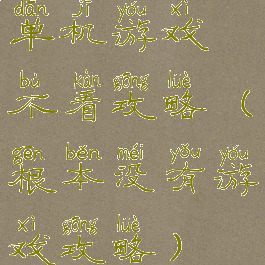 dān jī yóu xì
单机游戏
bú kàn gōng lüè
不看攻略（
gēn běn méi yǒu yóu
根本没有游
xì gōng lüè
戏攻略）